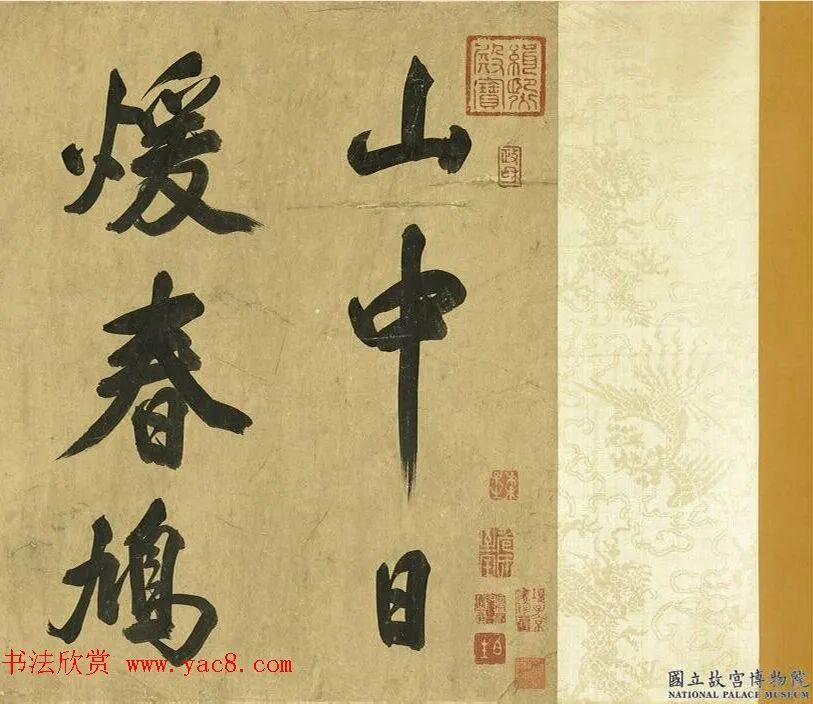 山中日
煖春鳩
緝熙殿寶
书法欣赏 www.yac8.com
國立故宮博物院
NATIONAL PALACE MUSEUM